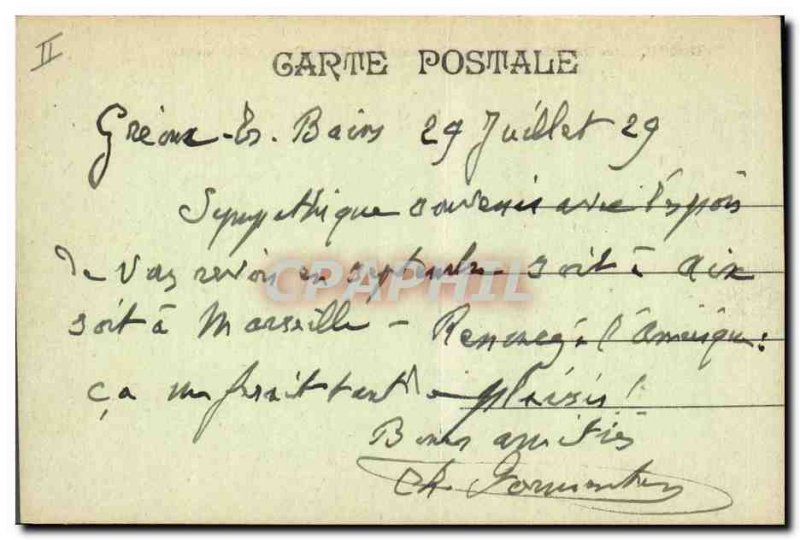 II
CARTE POSTALE
Gréoux-les-Bains 29 Juillet 29
Sympathique souvenir avec l'espoir
de vous revoir en septembre soit à Aix
soit à Marseille - Renoncez à l'Amérique :
ça me ferait tant de plaisir !
Bonnes amitiés
Ch
CPAPHIL